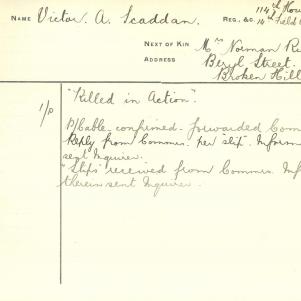 NAME Victor. A. Scaddan. REG., &C. 114th How
14th Field
NEXT OF KIN Mrs Norman Ri
ADDRESS Beryl Street.
Broken Hill
1/p "Killed in Action".
P/Cable confirmed. forwarded Com
Reply from Commrs. per slip. Inform
sent Inquirer.
"Slips" received from Commrs. Inf
therein sent Inquirer.